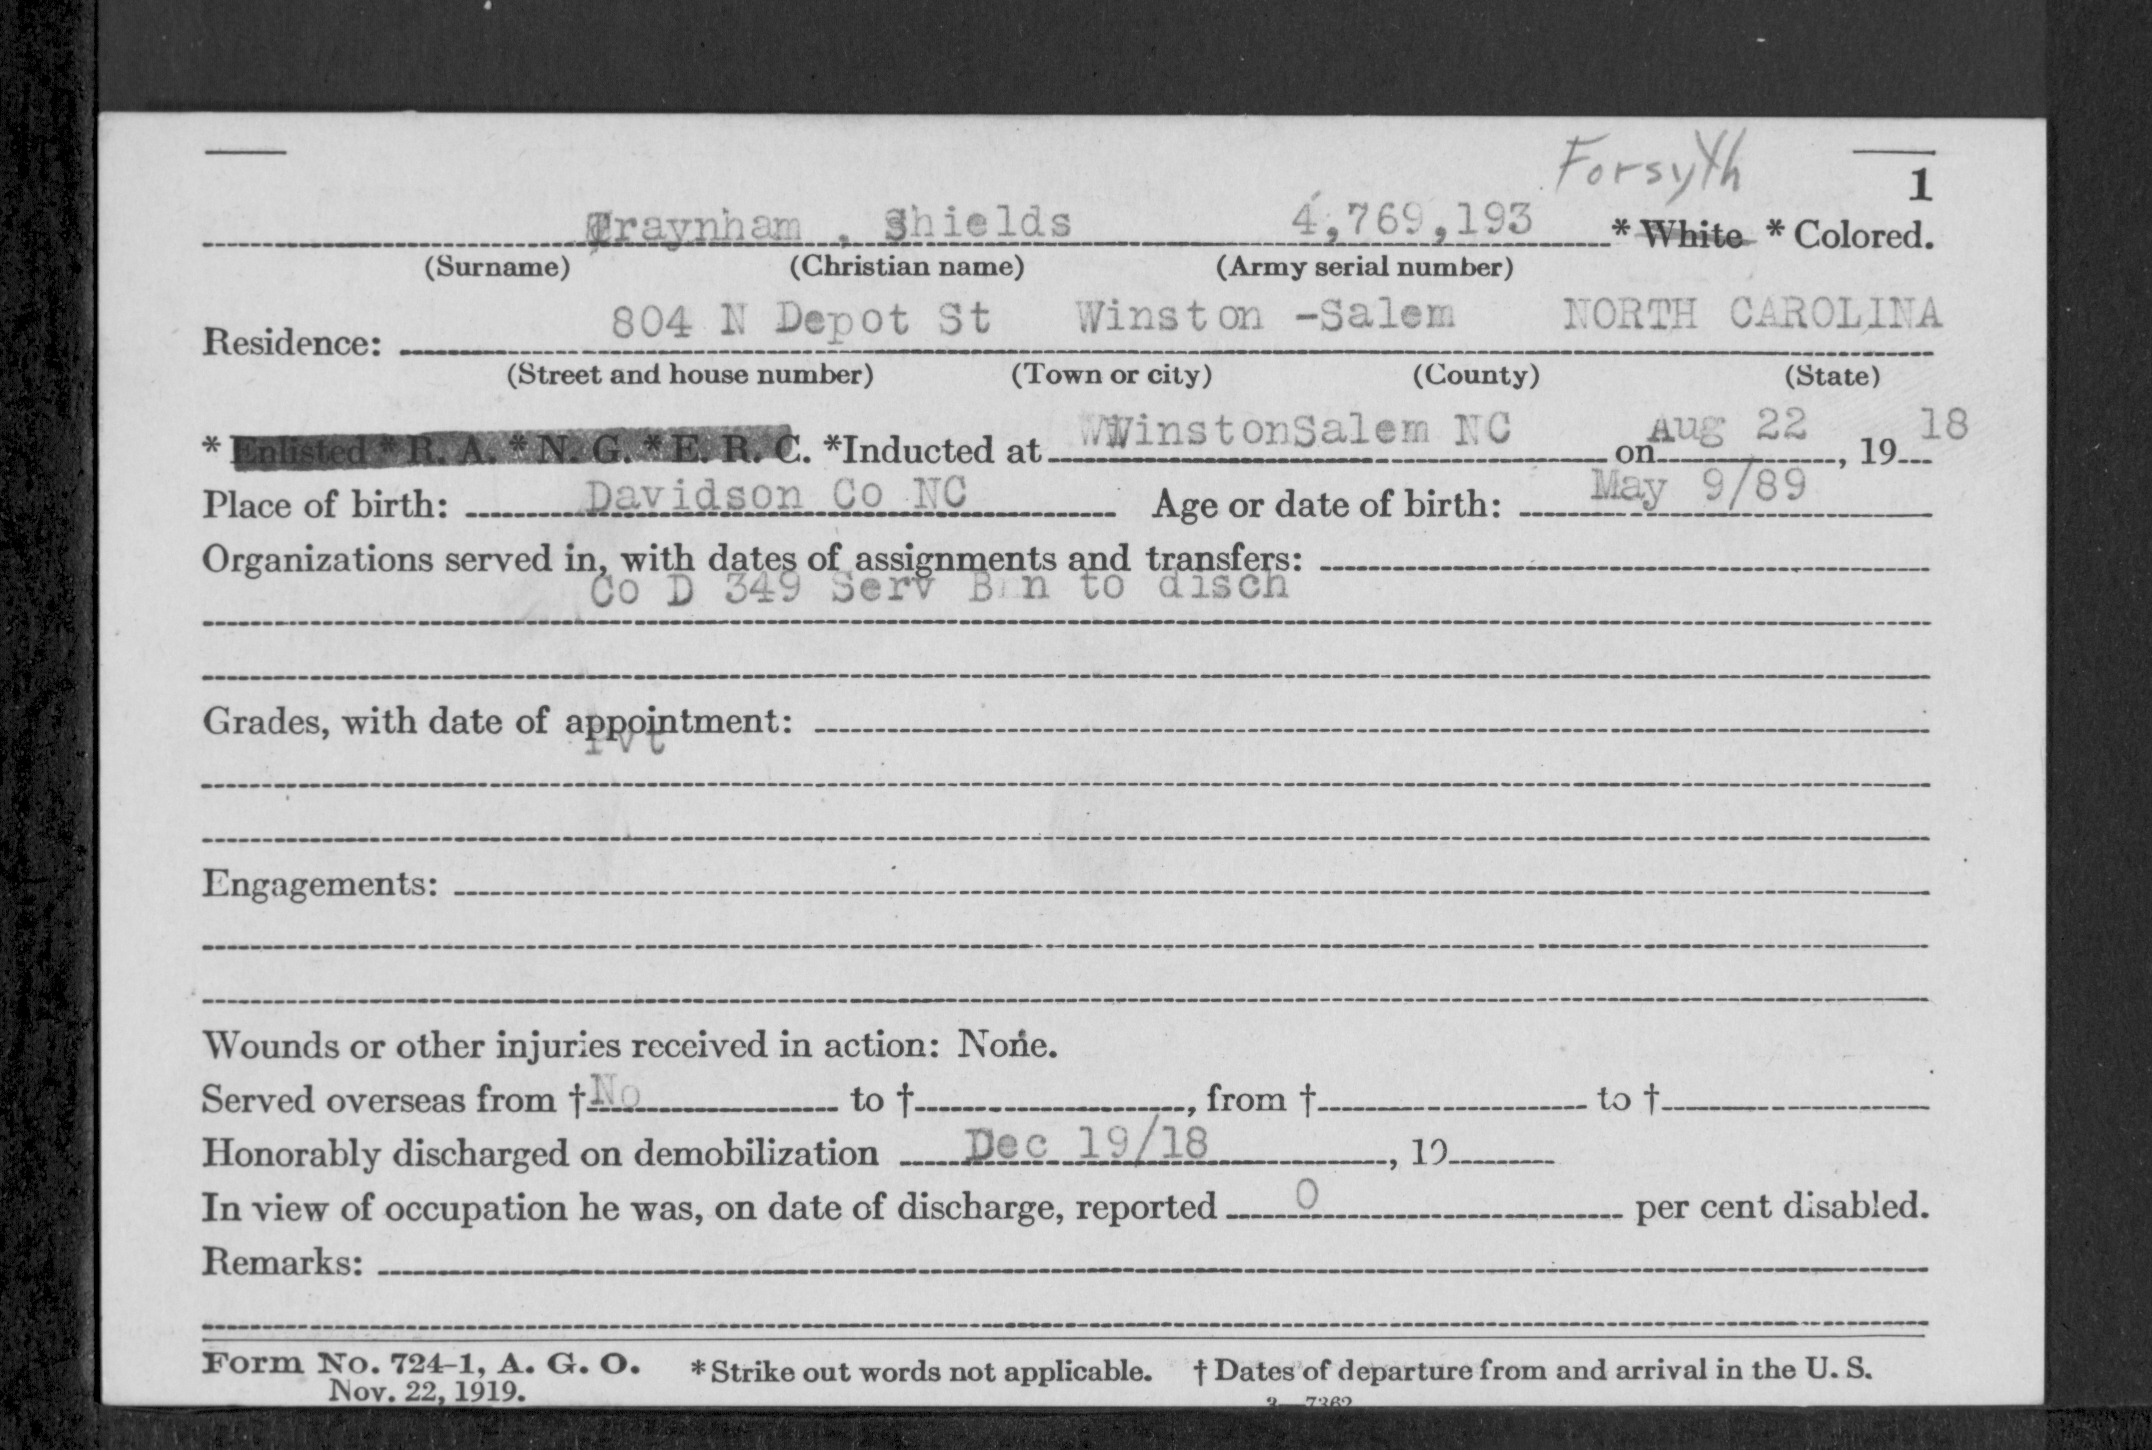 Forsyth
1
Traynham , Shields 4,769,193 * White * Colored.
(Surname) (Christian name) (Army serial number)
804 N Depot St Winston -Salem NORTH CAROLINA
Residence:
(Street and house number) (Town or city) (County) (State)
* Enlisted * R. A. * N. G. * E. R. C. *Inducted at WWinstonSalem NC on Aug 22, 19 18
Place of birth: Davidson Co NC Age or date of birth: May 9/89
Organizations served in, with dates of assignments and transfers:
Co D 349 Serv B n to disch
Grades, with date of appointment:
Pvt
Engagements:
Wounds or other injuries received in action: None.
Served overseas from † No to †, from † to †
Honorably discharged on demobilization Dec 19/18, 19
In view of occupation he was, on date of discharge, reported 0 per cent disabled.
Remarks:
Form No. 724-1, A. G. O. * Strike out words not applicable. † Dates of departure from and arrival in the U. S.
Nov. 22, 1919. 3—7362